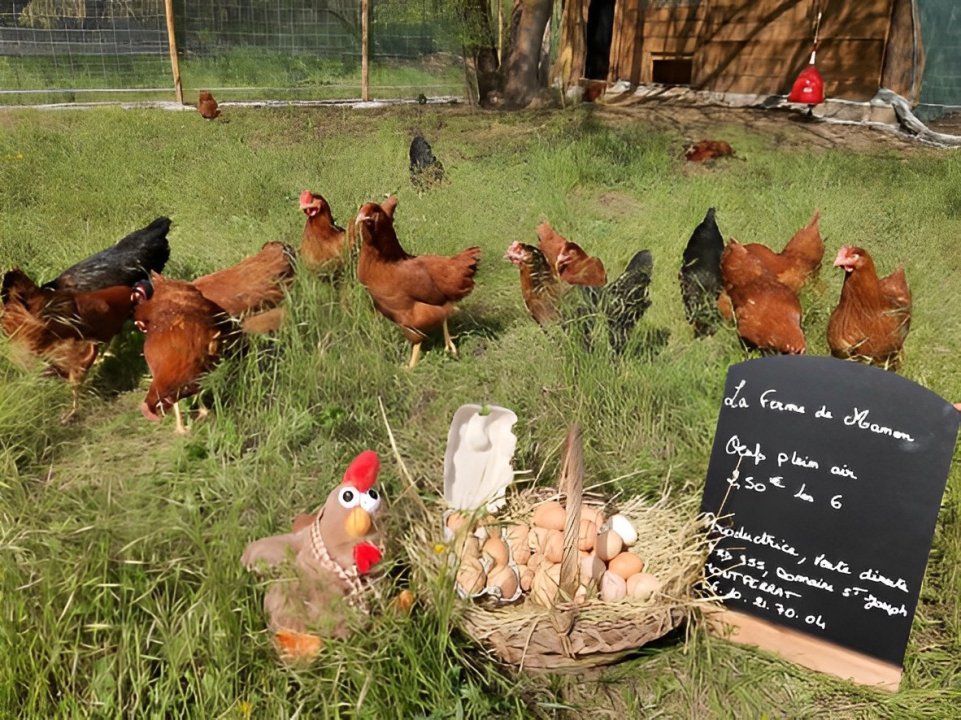 La Ferme de Manon
Oeufs plein air
2,50 € les 6
Productrice, Vente directe
955, Domaine St Joseph
MONTFERRAT
06.10.21.70.04